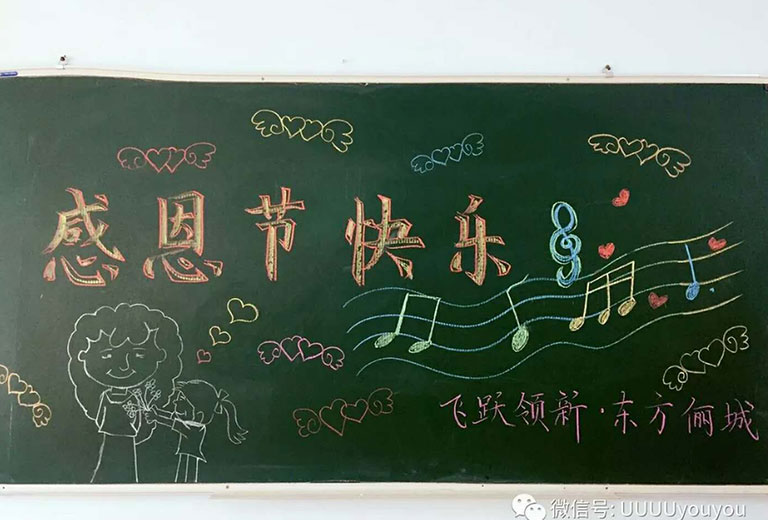 感恩节快乐
飞跃领新·东方俪城
微信号: UUUUyouyou